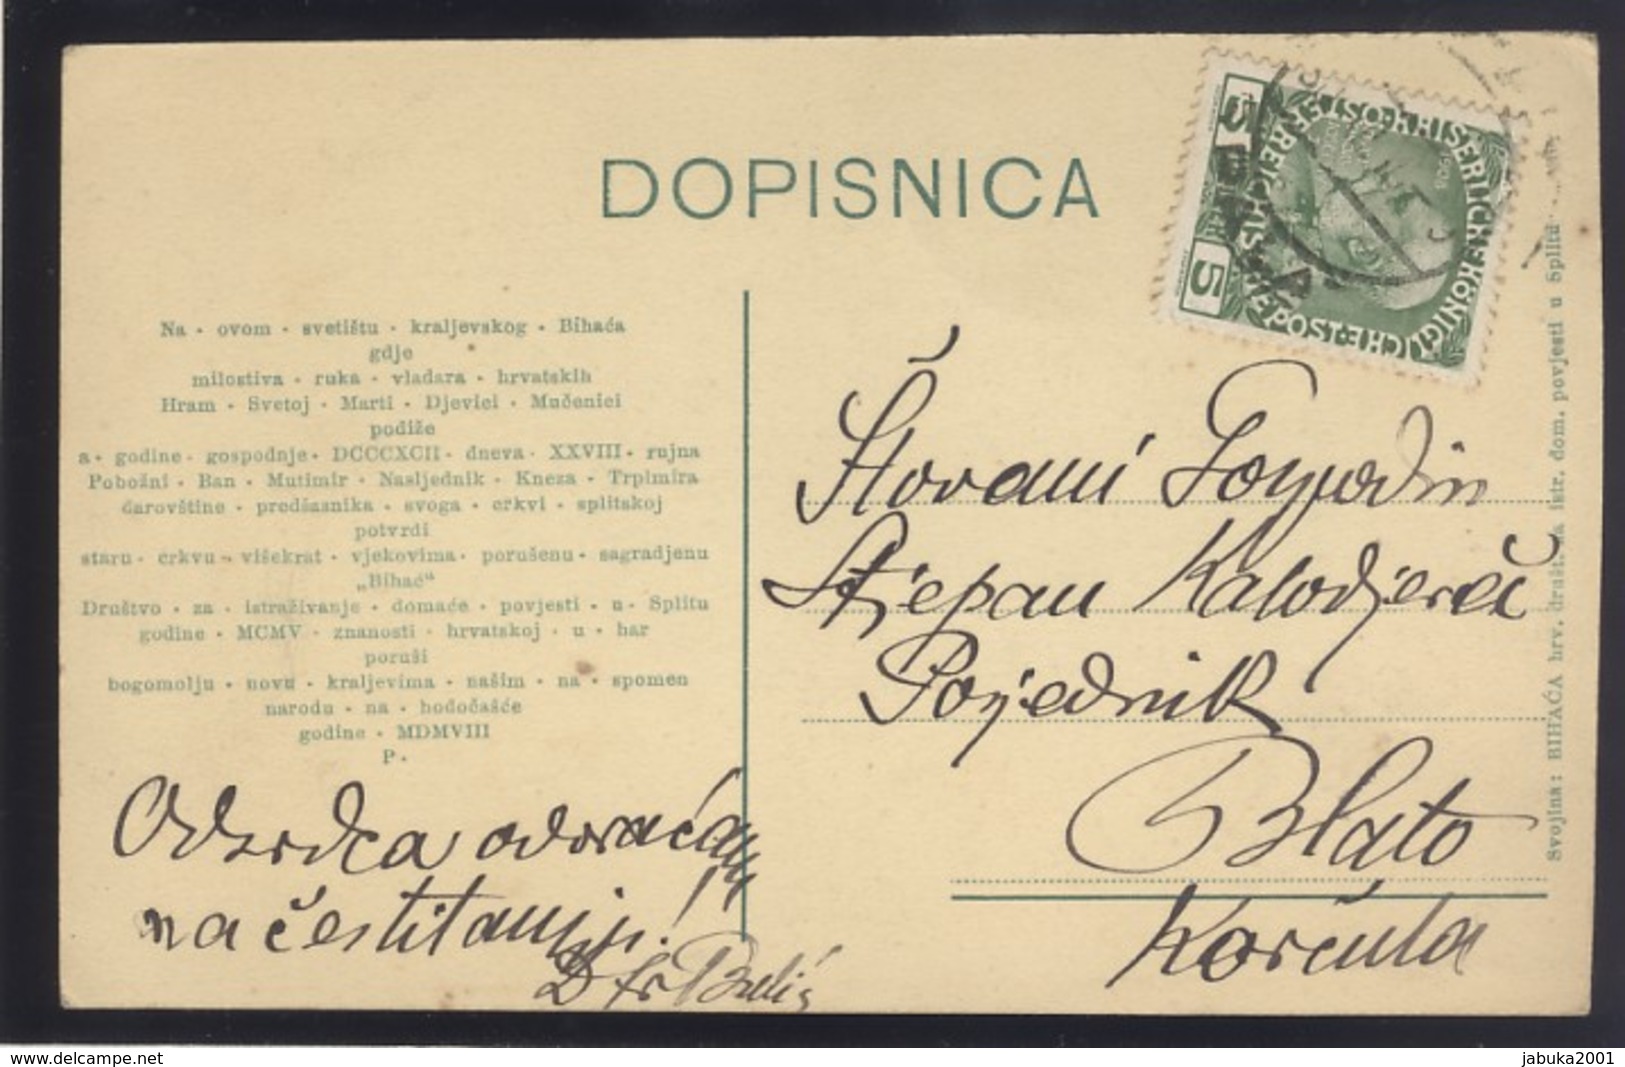 DOPISNICA
Na · ovom · svetištu · kraljevskog · Bihaća
gdje
milostiva · ruka · vladara · hrvatskih
Hram · Svetoj · Marti · Djevici · Mučenici
podiže
a · godine · gospodnje · DCCCXCII · dneva · XXVIII · rujna
Pobožni · Ban · Mutimir · Nasljednik · Kneza · Trpimira
darovštine · predšasnika · svoga · crkvi · splitskoj
potvrdi
staru · crkvu · višekrat · vjekovima · porušenu · sagradjenu
„Bihać“
Društvo · za · istraživanje · domaće · povjesti · u · Splitu
godine · MCMV · znanosti · hrvatskoj · u · har
poruši
bogomolju · novu · kraljevima · našim · na · spomen
narodu · na · hodočašće
godine · MDMVIII
P ·
Odzrdca odvraćam
na čestitanju!
Dr Fr Bulić
5
KAISERLICH KÖNIGLICHE ÖSTERREICHISCHE POST
1908
5
Štovani Gospodin
Stjepan Kalodjerčić
Posjednik
Blato
Korčula
Svojina: BIHAĆA hrv. društ. za istr. dom. povjesti u Splitu
www.delcampe.net
jabuka2001